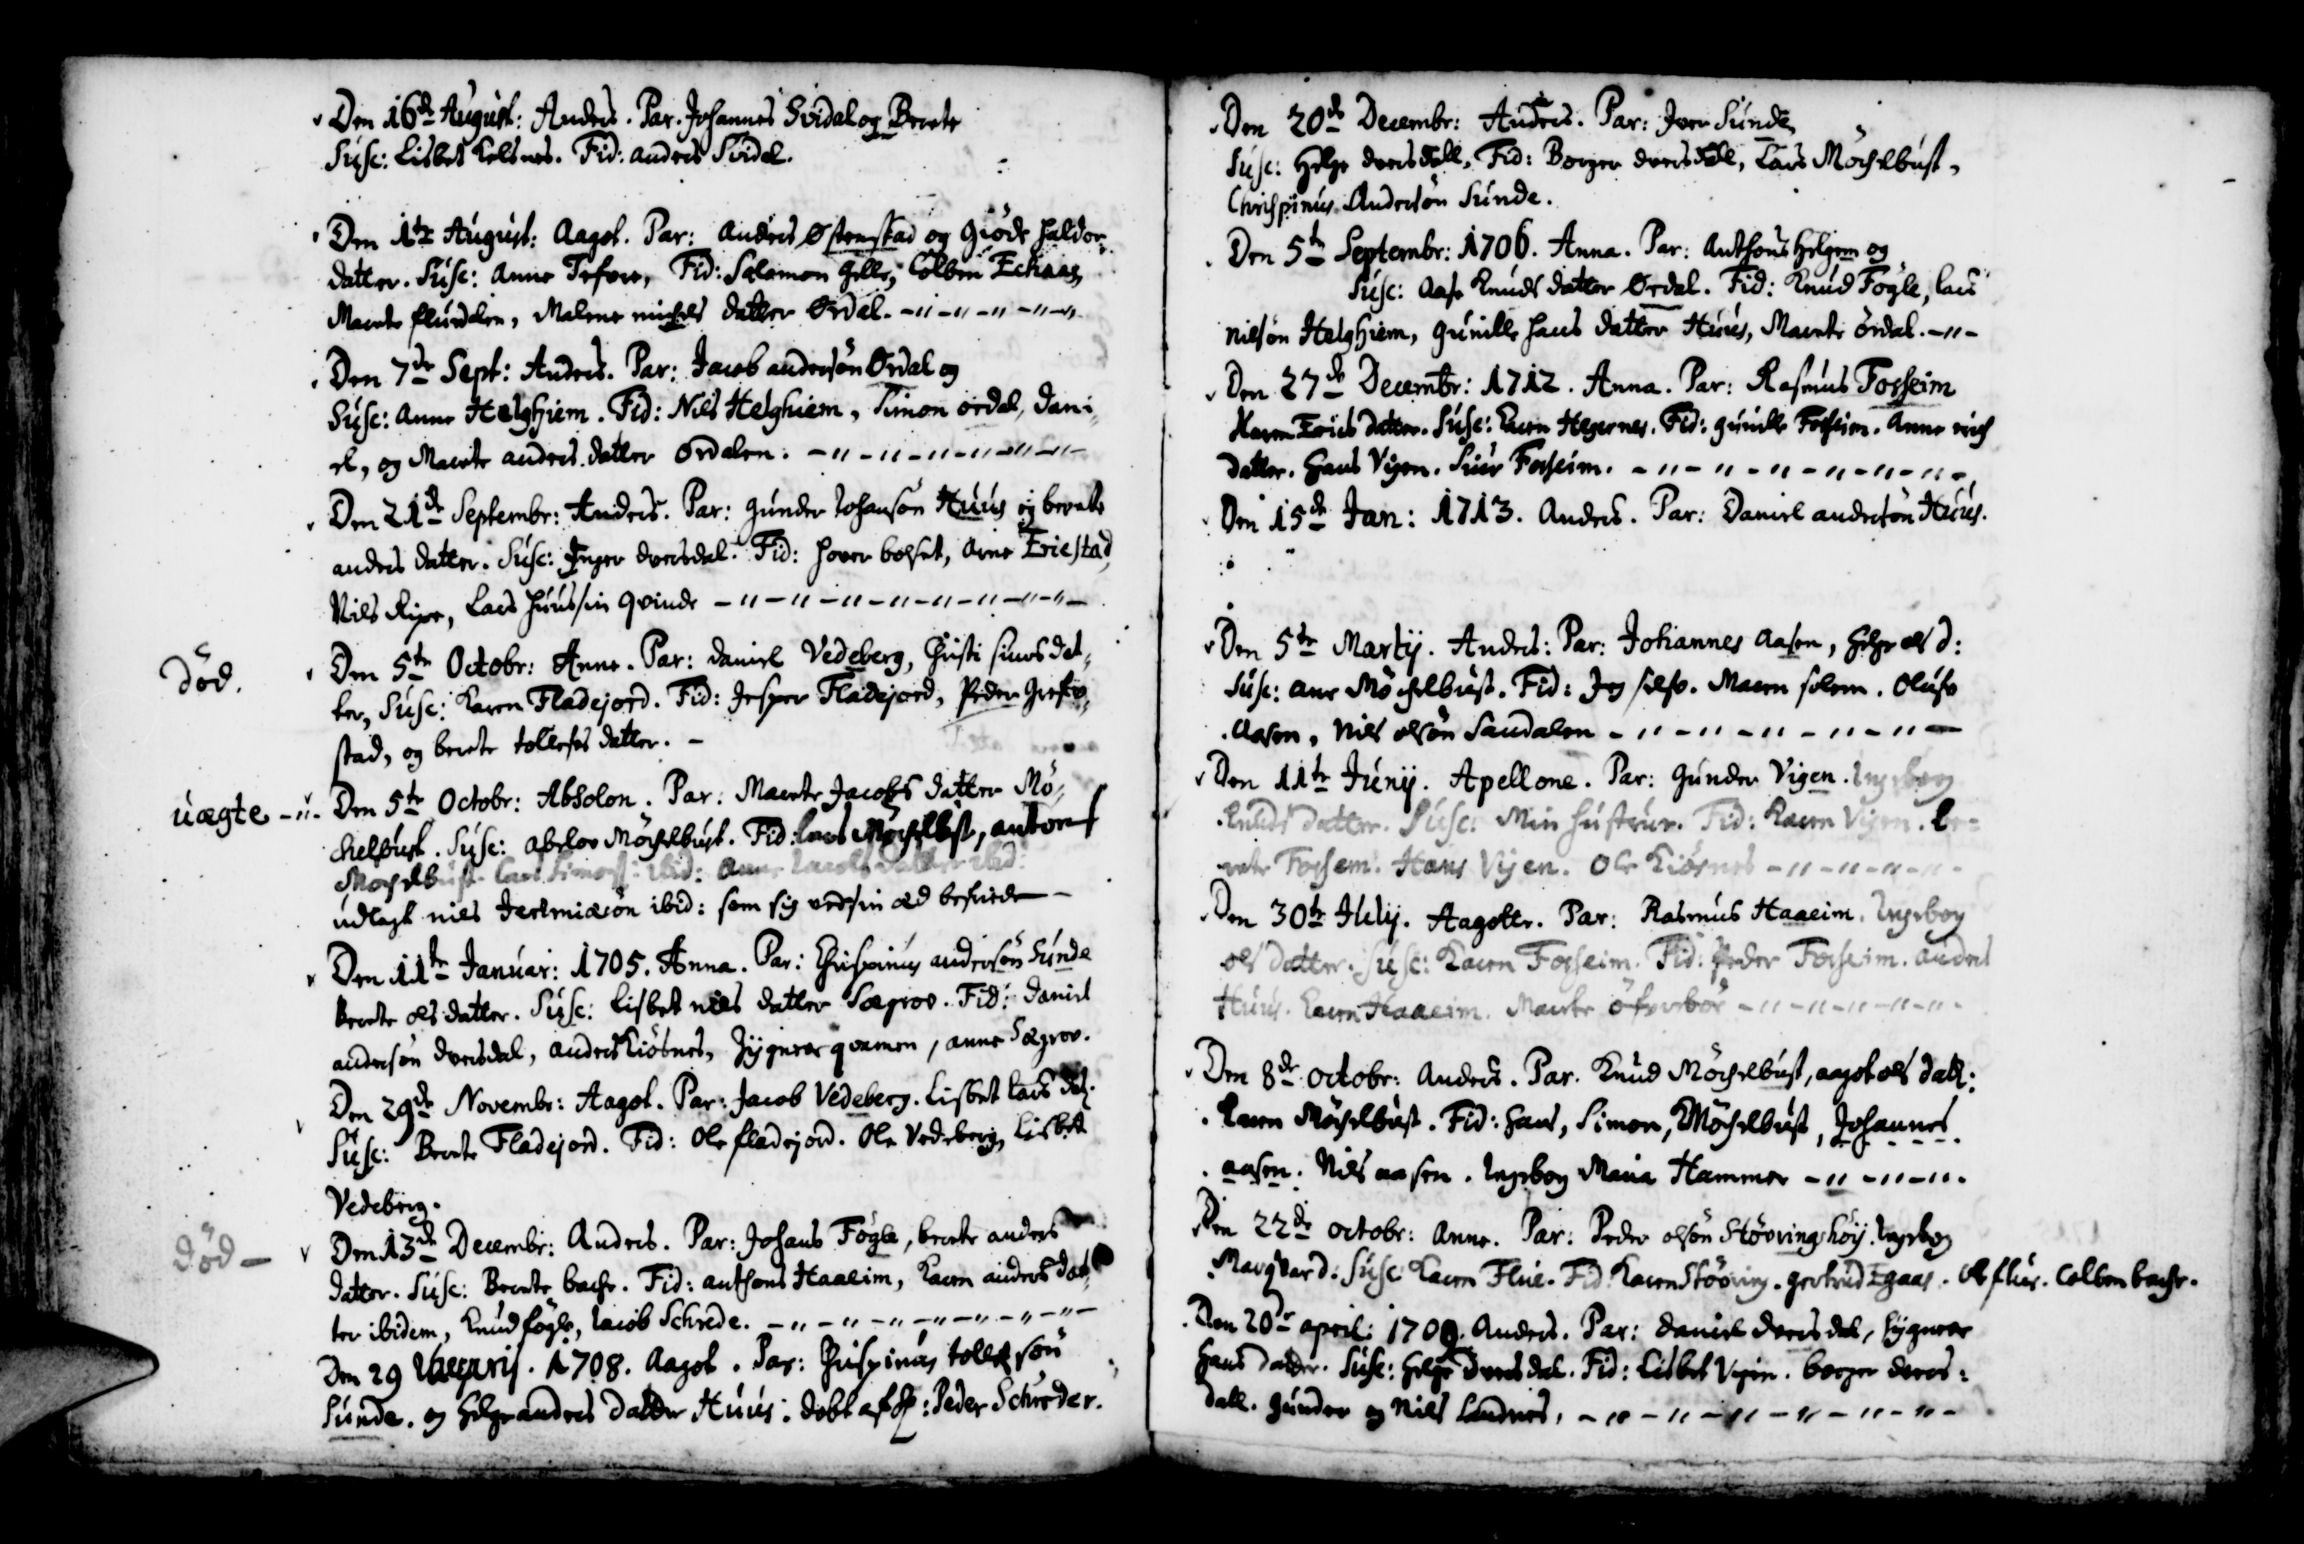 Den 16de August: Anders. Par. Johannes Svidal og Berete
Susc: Lisbet Kelsnes. Fid: anders Svidal.
Den 1te August: Aagot. Par: Anders Østenstad og Giøde haldor-
datter. Susc: Anne Tefvre, Fid: Salamon Helle, Colben Echaas,
Marete flundalen, Malene michels datter Ørdal. -"-"-"-"-
Den 7de Sept: Anders. Par: Jacob andersøn Ørdal og
Susc: Anne Helghiem. Fid: Nils Helghiem, Simon ørdal, Dani-
el, og Marete anders datter ørdalen: -"-"-"-"-"-
Den 21de Septembr: Anders. Par: gunder Johansøn Huus og berete
anders datter. Susc: Inger dversdal. Fid: hover bolset, Arne Eriestad,
Nils Ripe, Lars huus sin qvinde -"-"-"-"-"-"-"-
død.
Den 5te Octobr: Anne. Par: daniel Vedeberg, Christi siurs dat-
ter, Susc: Karen Fladejord. Fid: Jesper Fladejord, Peder
stad, og berete tollefs datter. -
uægte -"-
Den 5te Octobr: Absolon. Par: Marete Jacobs datter Mö-
chelbust. Susc: Möchelbust. Fid: lars Möchelbust, anton
Möchelbust. Lars Simons: ibid: Anne Jacobs datter ibid:
udlagt nils Jeremiæsøn ibid: som sig ved sin æd befriede -
Den 11te Januar: 1705. Anna. Par: Chrispinus andersøn Sunde
Berete ols datter. Susc: Lisbet niels datter Sægrov. Fid: Daniel
andersøn dversdal, anders Kiösnes, Sygneve qvamen, anne Sægrov.
Den 29de Novembr: Aagot. Par: Jacob Vedeberg. Lisbet lars dat:
Susc: Berete Fladejord. Fid: Ole fladejord. Ole Vedeberg, Lisbet
Vedeberg.
død -
Den 13de Decembr: Anders. Par: Johans Fögle, berete anders
datter. Susc: Berete bache. Fid: anthons Haaeim, Karen anders dat-
ter ibidem, Knud fögle, Jacob Schrede. -"-"-"-"-"-"-
Den 29 1708. Aagot. Par: Chrispinus tollefsøn
Sunde. og Helge anders datter Huus. døbt af Hr: Peder Schrøder.
Den 20de Decembr: Anders. Par: Iver Sunde
Susc: Helge dversdall, Fid: Borger dversdall, Lars Möchelbust,
Chrispinus Andersøn Sunde.
Den 5te Septembr: 1706. Anna. Par: Anthons Helgem og
Susc: Aase Knuds datter Ørdal. Fid: Knud Fögle, lars
nilsøn Helghiem, gunille hans datter Huus, Marete ørdal. -"-
Den 27de Decembr: 1712. Anna. Par: Rasmus Fosseim
Karen Erics datter. Susc: Karen Hegernes. Fid: gunille Fosseim. Anne
datter. Hans Vigen. Siur Fosseim. -"-"-"-"-"-"-
Den 15de Jan: 1713. Anders. Par: Daniel andersøn Huus.
Den 5te Martij. Anders: Par: Johannes Aasen, Helge ols d:
Susc: ane Möchelbust. Fid: Jeg self. Maren solem. Oluf
Aasen, Nils olsøn Sandalen -"-"-"-"-"-
Den 11te Junij. Apellone. Par: Gunder Vigen. Ingebor
Knuds datter. Susc: Min hustrue. Fid: Karen Vigen. be-
rete Fossem. Hans Vijen. Ole Kiøsnes -"-"-"-"-
Den 30te Julij. Aagotte. Par: Rasmus Haaeim. Ingebor
ols datter. Susc: Karen Fosseim. Fid: Peder Fosseim. anders
Huus. Karen Haaeim. Marete øfrebøe -"-"-"-"-"-
Den 8de octobr: Anders. Par. Knud Möchelbust, aagot ols datt:
Karen Möchelbust. Fid: hans, Simon, Möchelbust, Johannes
aasen. Nils aasen. Ingebor Maria Hammer -"-"-"-
Den 22de octobr: Anne. Par: Peder olsøn Stövringhöij. Ingebor
Marqvard: Susc: Karen Flue. Fid: Karen Stövring. gertrud Egaas. Ole flue. Colben bache.
Den 20de april: 1709. Anders. Par: daniel dversdal, Sygneve
Hans datter. Susc: Helge Dversdal. Fid: Lisbet Vigen. borger dvers:
dall. gunder og Nils Sandnes, -"-"-"-"-"-"-